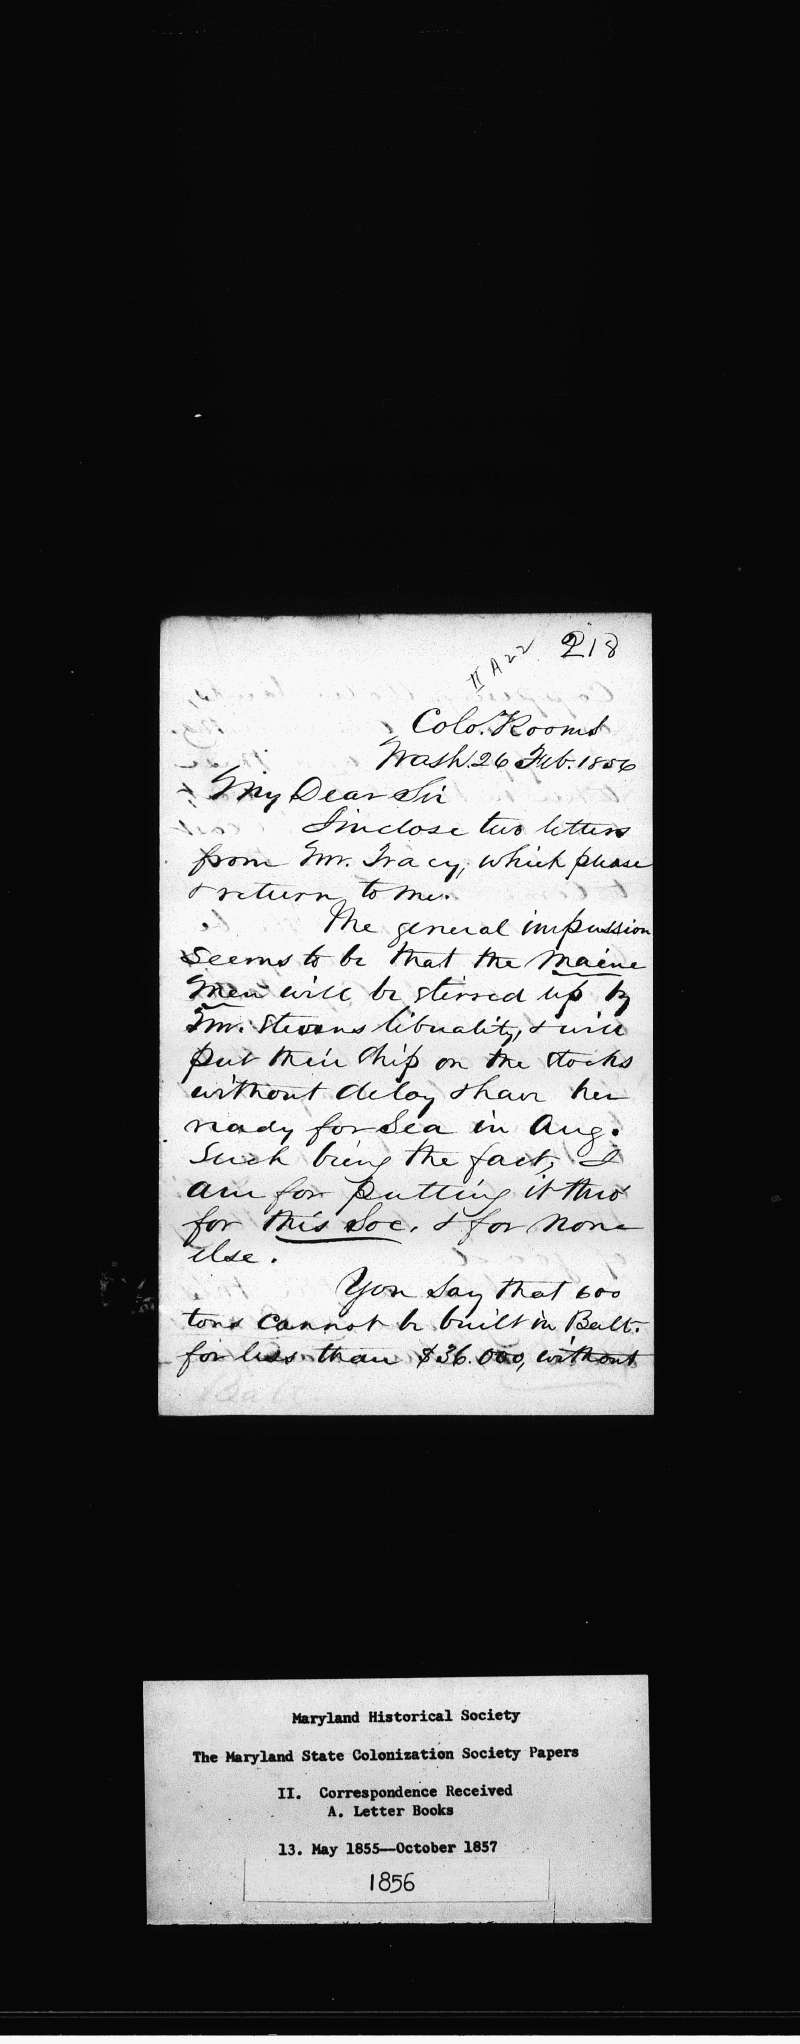 218
II A 22
Colo. Rooms
Wash. 26 Feb. 1856
My Dear Sir
I inclose two letters
from Mr. Tracy, which please
& return to me.
The general impression
seems to be that the Maine
Men will be stirred up by
Mr. Stevens liberality, & will
put their Ship on the stocks
without delay & have her
ready for Sea in Aug.
Such being the fact, I
am for putting it thro'
for this Soc. & for none
else.
You say that 600
tons cannot be built in Balt.
for less than $36.000, without
Maryland Historical Society
The Maryland State Colonization Society Papers
II. Correspondence Received
A. Letter Books
13. May 1855--October 1857
1856